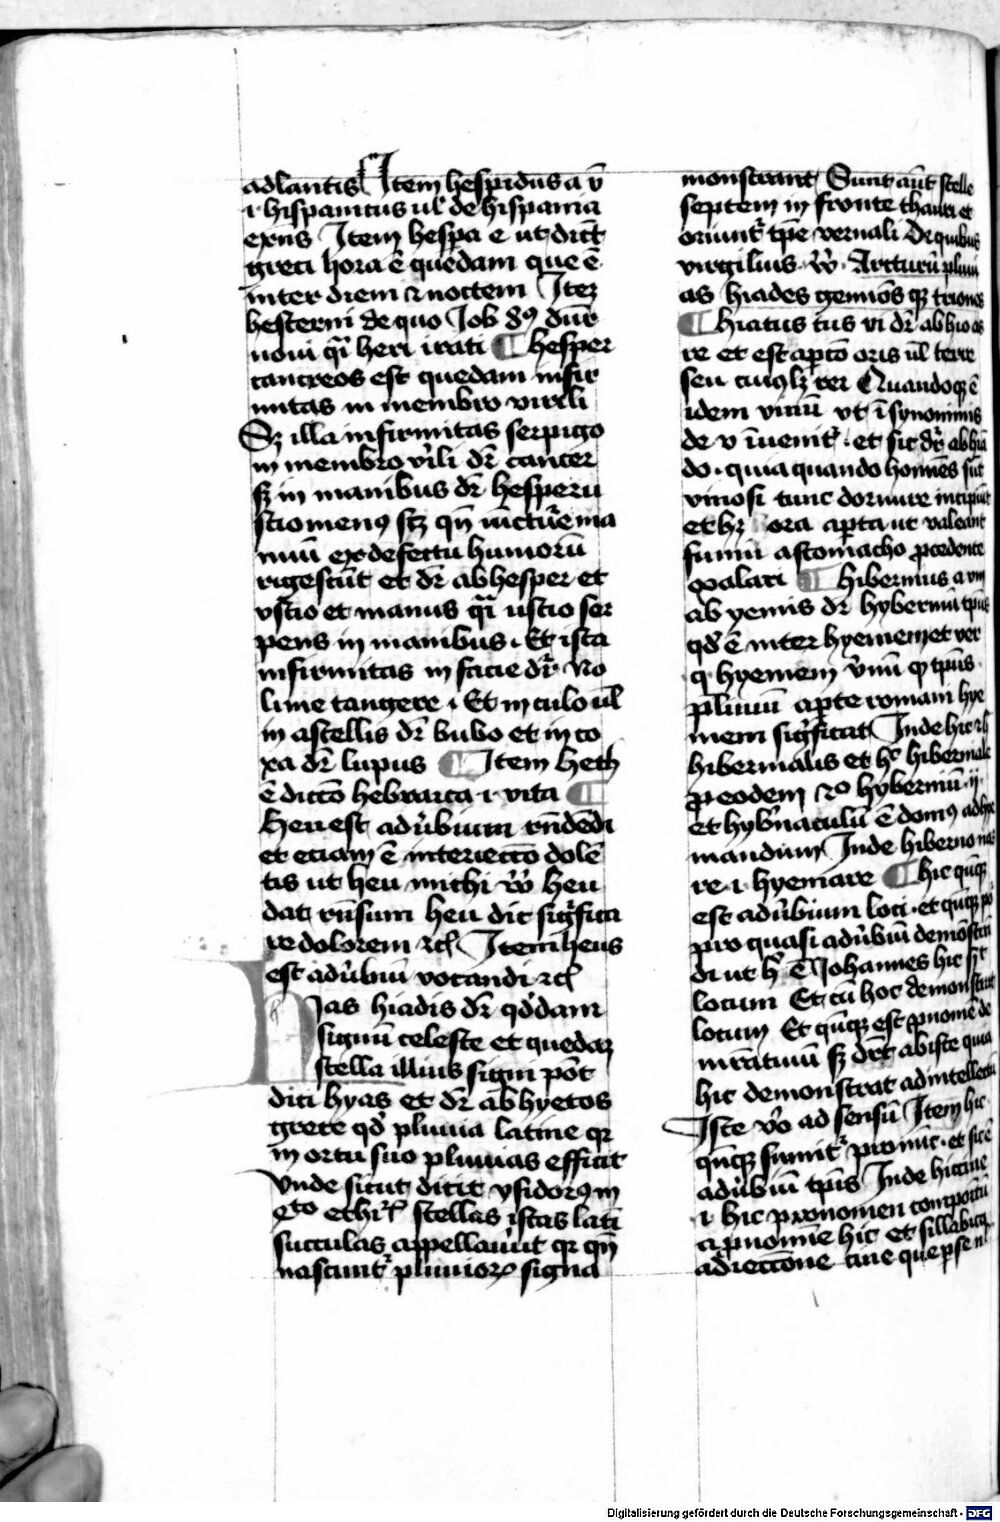 adlantis Item hespidus a ū
i hispanicus ul̄ de hispania
exn̄s Item hespa ē ut dicūt
greci hora ē quedam que ē
inter diem et noctem Itez
hesterni de quo Job 8° dūr
noui q̄i heri irati ¶ hesper
cancreos est quedam infir
mitas in membro virili
Sz illa infirmitas serpigo
in membro v̄ili dr̄ cancer
sz in manibus dr̄ hesperu
stiomenꝯ scz qn̄
nuū ex defectu humorū
rigescūt et dr̄ ab hesper et
vstio et manus q̄i ustio ser
pens in manibus. Et ista
infirmitas in facie dr̄ No
lime tangere. Et in culo ul̄
in astellis dr̄ bubo et in co
xa dr̄ lupus ¶ Item heth
ē dictō hebrayca i vita ¶
Heu est adūbium rn̄dēdi
et eciam ē interiectō dolē
tis ut heu michi v̄o heu
dat rūsum heu dic sigfica
re dolorem etc̄ Item heus
est adūbiū vocandi etc̄
Hjas hiadis dr̄ qd̄dam
signū celeste et quedaz
stella illius signi pōt
dici hyas et dr̄ ab hyetos
grece qd̄ pluuia latine qr
in ortu suo pluuias efficit
Vnde sicut dicit ysidorꝯ in
ethi͞ stellas istas latī
succulas appellauūt qr qn̄
nascunt᷑ pluuioꝝ signa
monstrant Sunt aūt stelle
septem in fronte thauri et
oriunt᷑ tp̄e vernali De quibus
virgilius v̄o Arcturū pluui
as hiades geminos qz triones
¶ hiatus tus ui dr̄ ab hio as
re et est aptō oris ul̄ terre
seu cuiꝯlz rei Quandoqz ē
idem vinū vt ī synonimis
de v īuenit᷑ et sic dr̄ ab hia
do quia quando homīes sūt
vinosi tunc dormire incipiūt
et hz ora apta ut valeant
fumū a stomacho procedente
exalari ¶ hibernus a um
ab yemis dr̄ hybernū tp̄us
qd̄ ē inter hyemem et ver
q hyemem v̄nū tp̄us
plinium apte romani hye
mem sigficat Inde hic et h̄
hibernalis et hᷓ hibernale
p eodem et° hyberniū ij
et hyb̄naculū ē domꝯ ad hye
mandum Inde hiberno nas
re i hyemare ¶ hic qn̄qz
est adūbium loci et qn̄qz po
pro quasi adūbiū demōstrā
di ut hᷓ ē Johannes hic sit
locum Et cū hoc demonstrat
locum Et qn̄qz est pnomē de
mratiuū sz drt̄ ab iste quia
hic demonstrat ad intellectū
Iste v̄o ad sensū Item hic
qn̄qz sumit᷑ pro nūc et sic ē
adūbiū tp̄is Inde hiccine
i hic pronomen compositū
a pnomīe hic et sillabica
adiectione cine que p se n̄
Digitalisierung gefördert durch die Deutsche Forschungsgemeinschaft - DFG